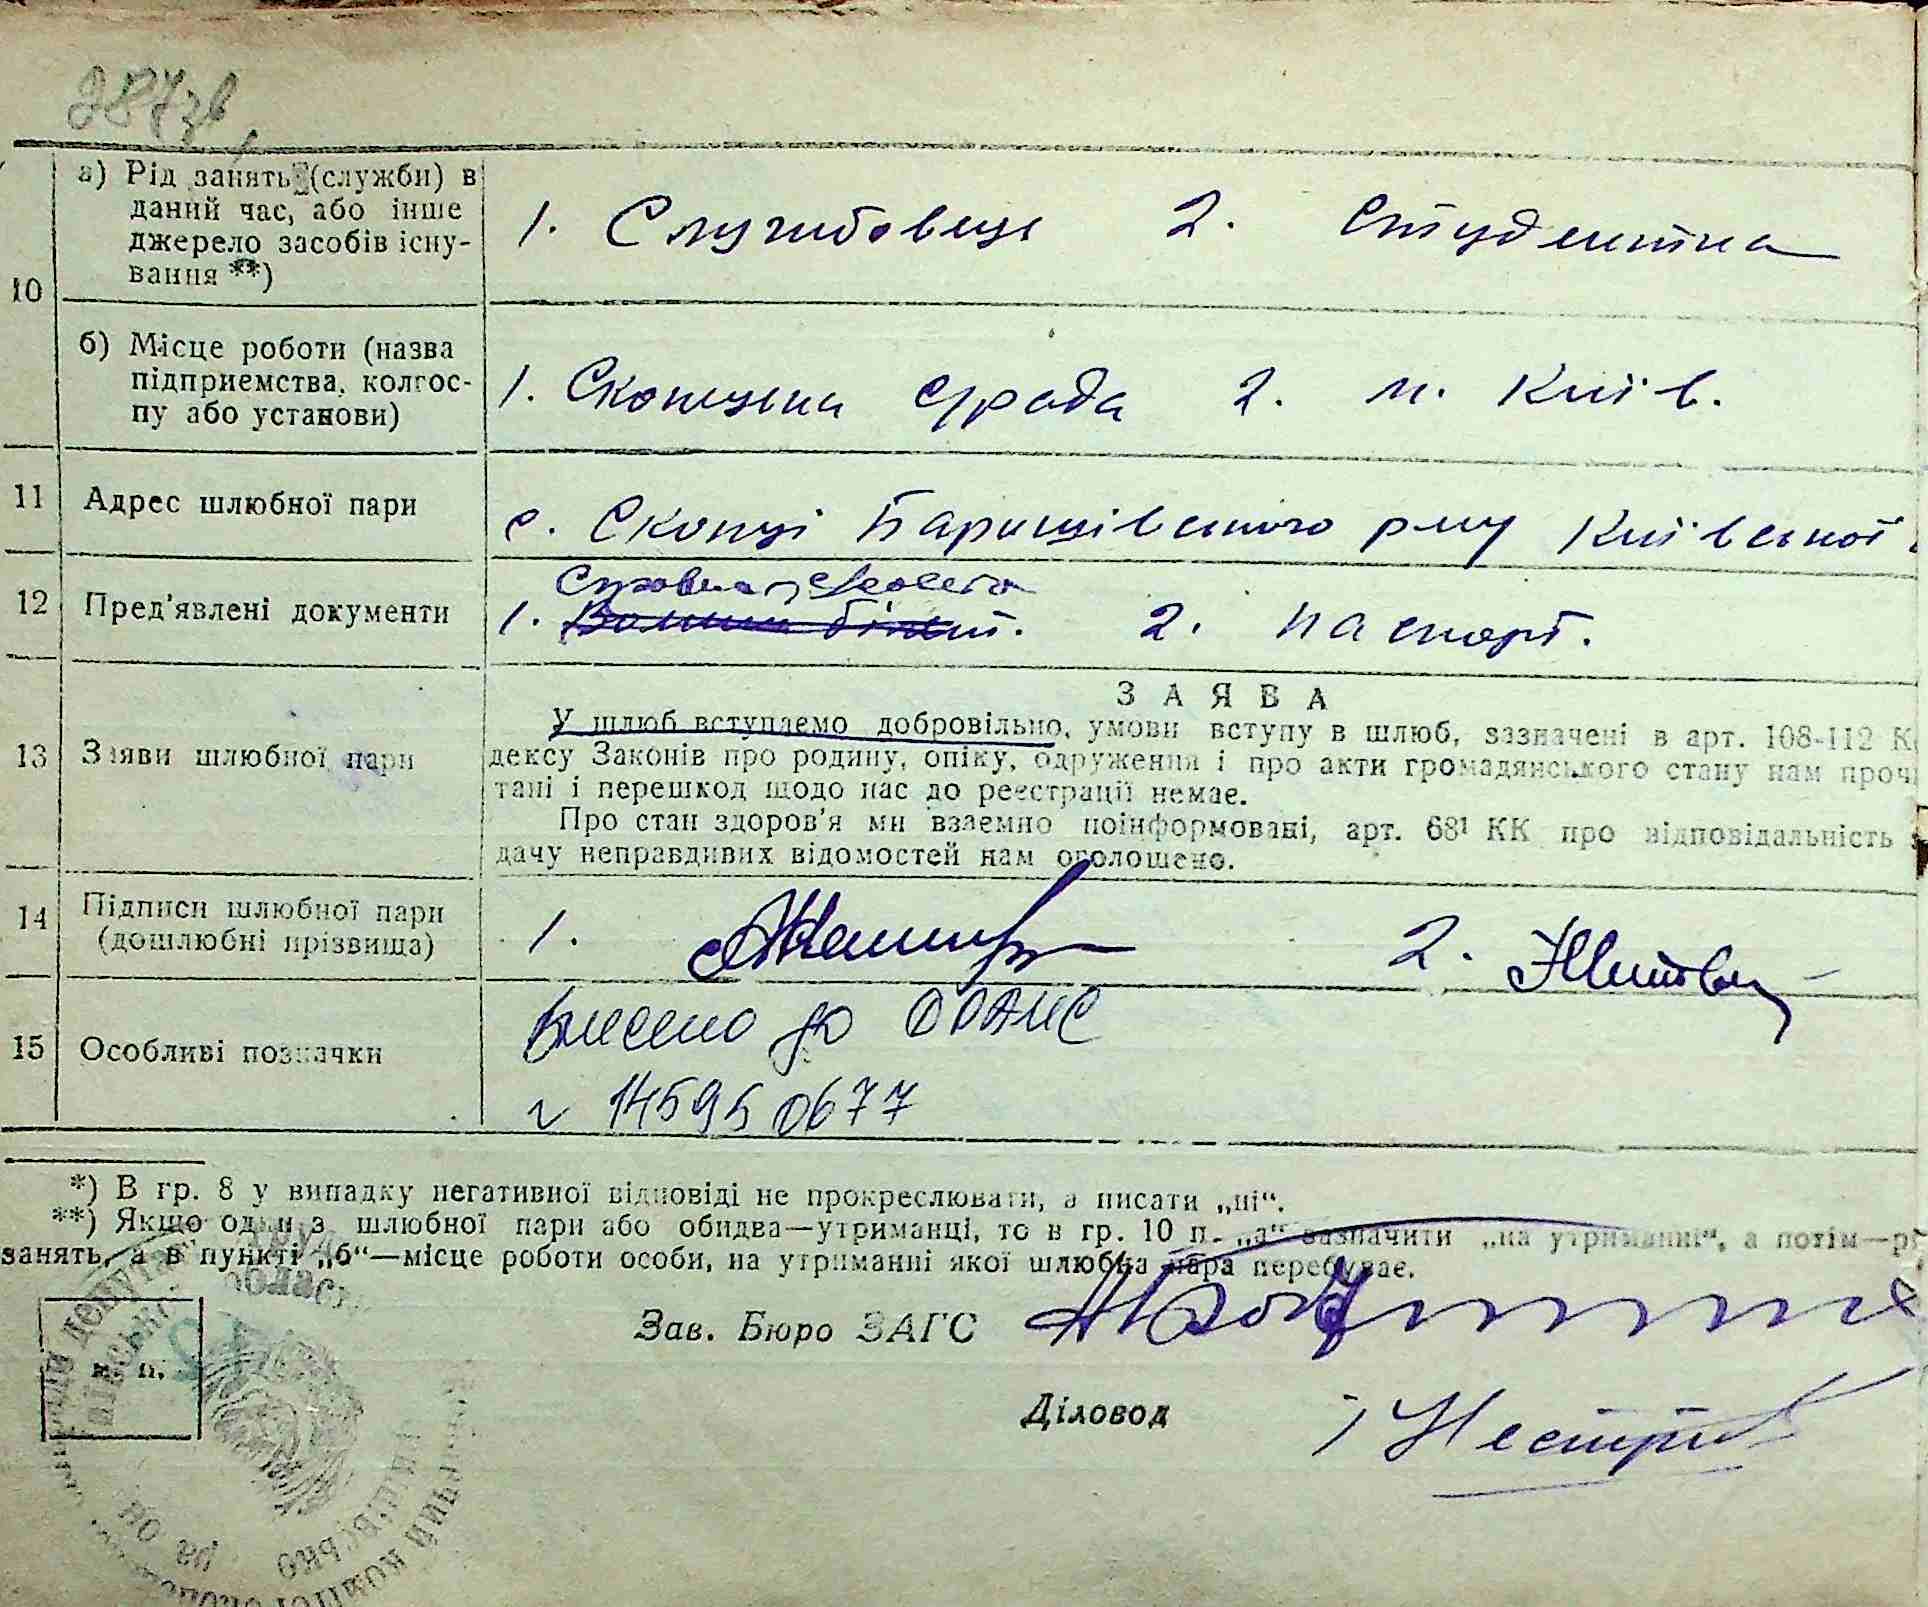 287зв
10
а) Рід занять (служби) в
даний час, або інше
джерело засобів існу-
вання **)
1. Службовець 2. Студентка
б) Місце роботи (назва
підприємства, колгос-
пу або установи)
1. Скопецька с/рада 2. м. Київ.
11
Адрес шлюбної пари
с. Скопці Баришівського р-ну Київської
12
Пред'явлені документи
Справка з с/совета
1. Воєнний білет. 2. паспорт.
13
Заяви шлюбної пари
ЗАЯВА
У шлюб вступаємо добровільно, умови вступу в шлюб, зазначені в арт. 108-112 Ко
дексу Законів про родину, опіку, одруження і про акти громадянського стану нам прочи
тані і перешкод щодо нас до реєстрації немає.
Про стан здоров'я ми взаємно поінформовані, арт. 68¹ КК про відповідальність з
дачу неправдивих відомостей нам оголошено.
14
Підписи шлюбної пари
(дошлюбні прізвища)
1. 2.
15
Особливі позначки
Внесено до ДРАЦС
№ 14595 0677
*) В гр. 8 у випадку негативної відповіді не прокреслювати, а писати „ні“.
**) Якщо один з шлюбної пари або обидва—утриманці, то в гр. 10 п. „а“ зазначити „на утриманні“, а потім—рі
занять, а в пункті „б“—місце роботи особи, на утриманні якої шлюбна пара перебуває.
Зав. Бюро ЗАГС
м. п.
Діловод